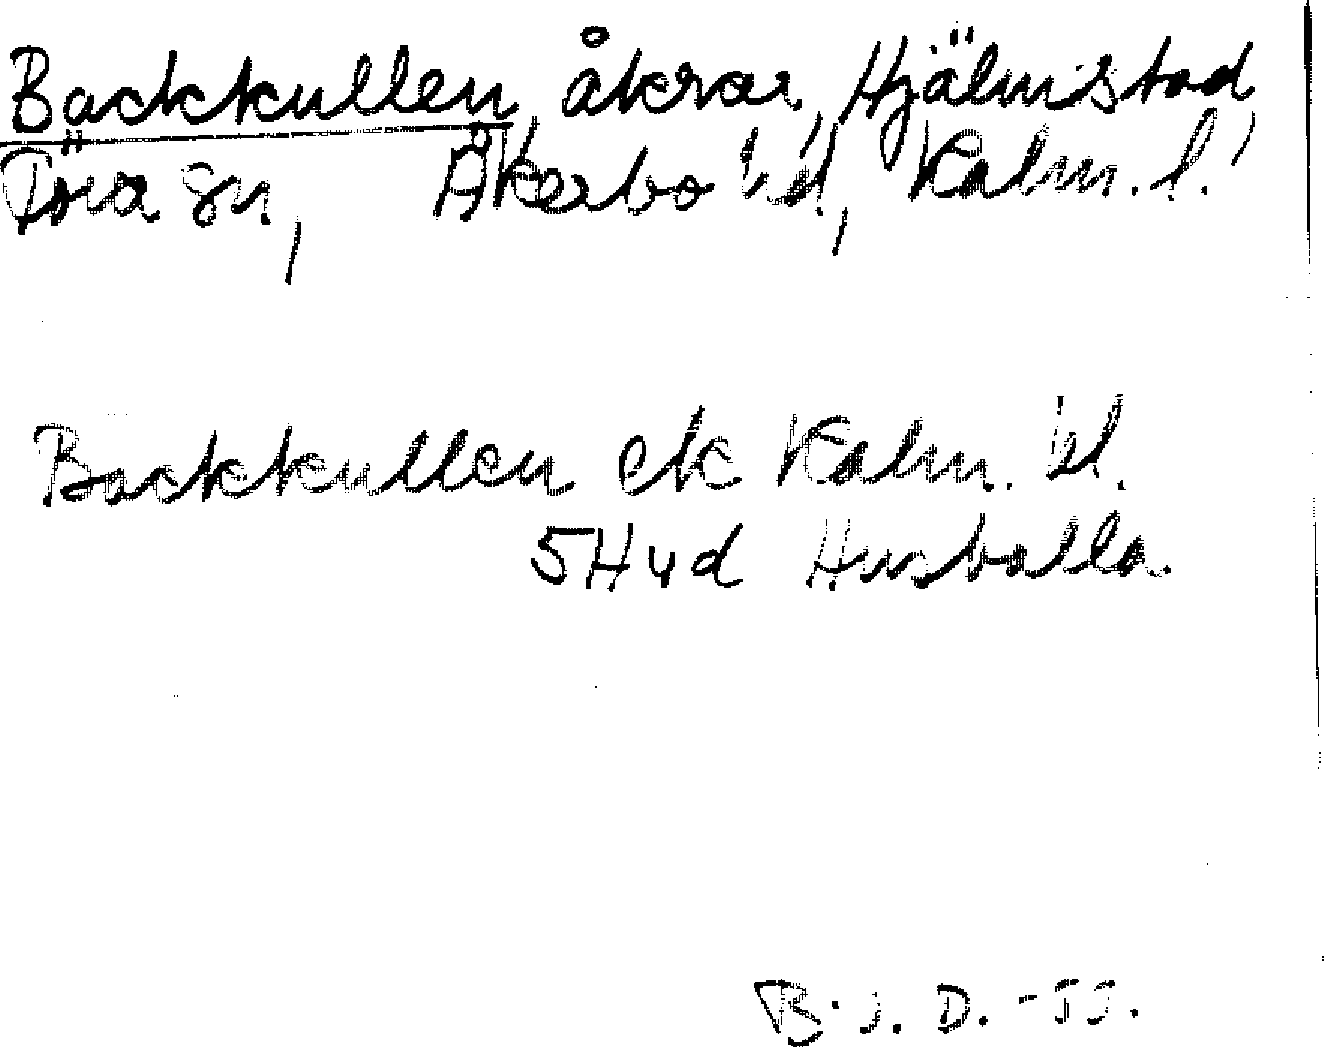 Backkullen, åkrar, Hjälmstad,
Föra sn, Åkerbo hd, Kalm. l.
Backkullen ek Kalm. l.
5H4d Husvalla.
B. J. D. -55.